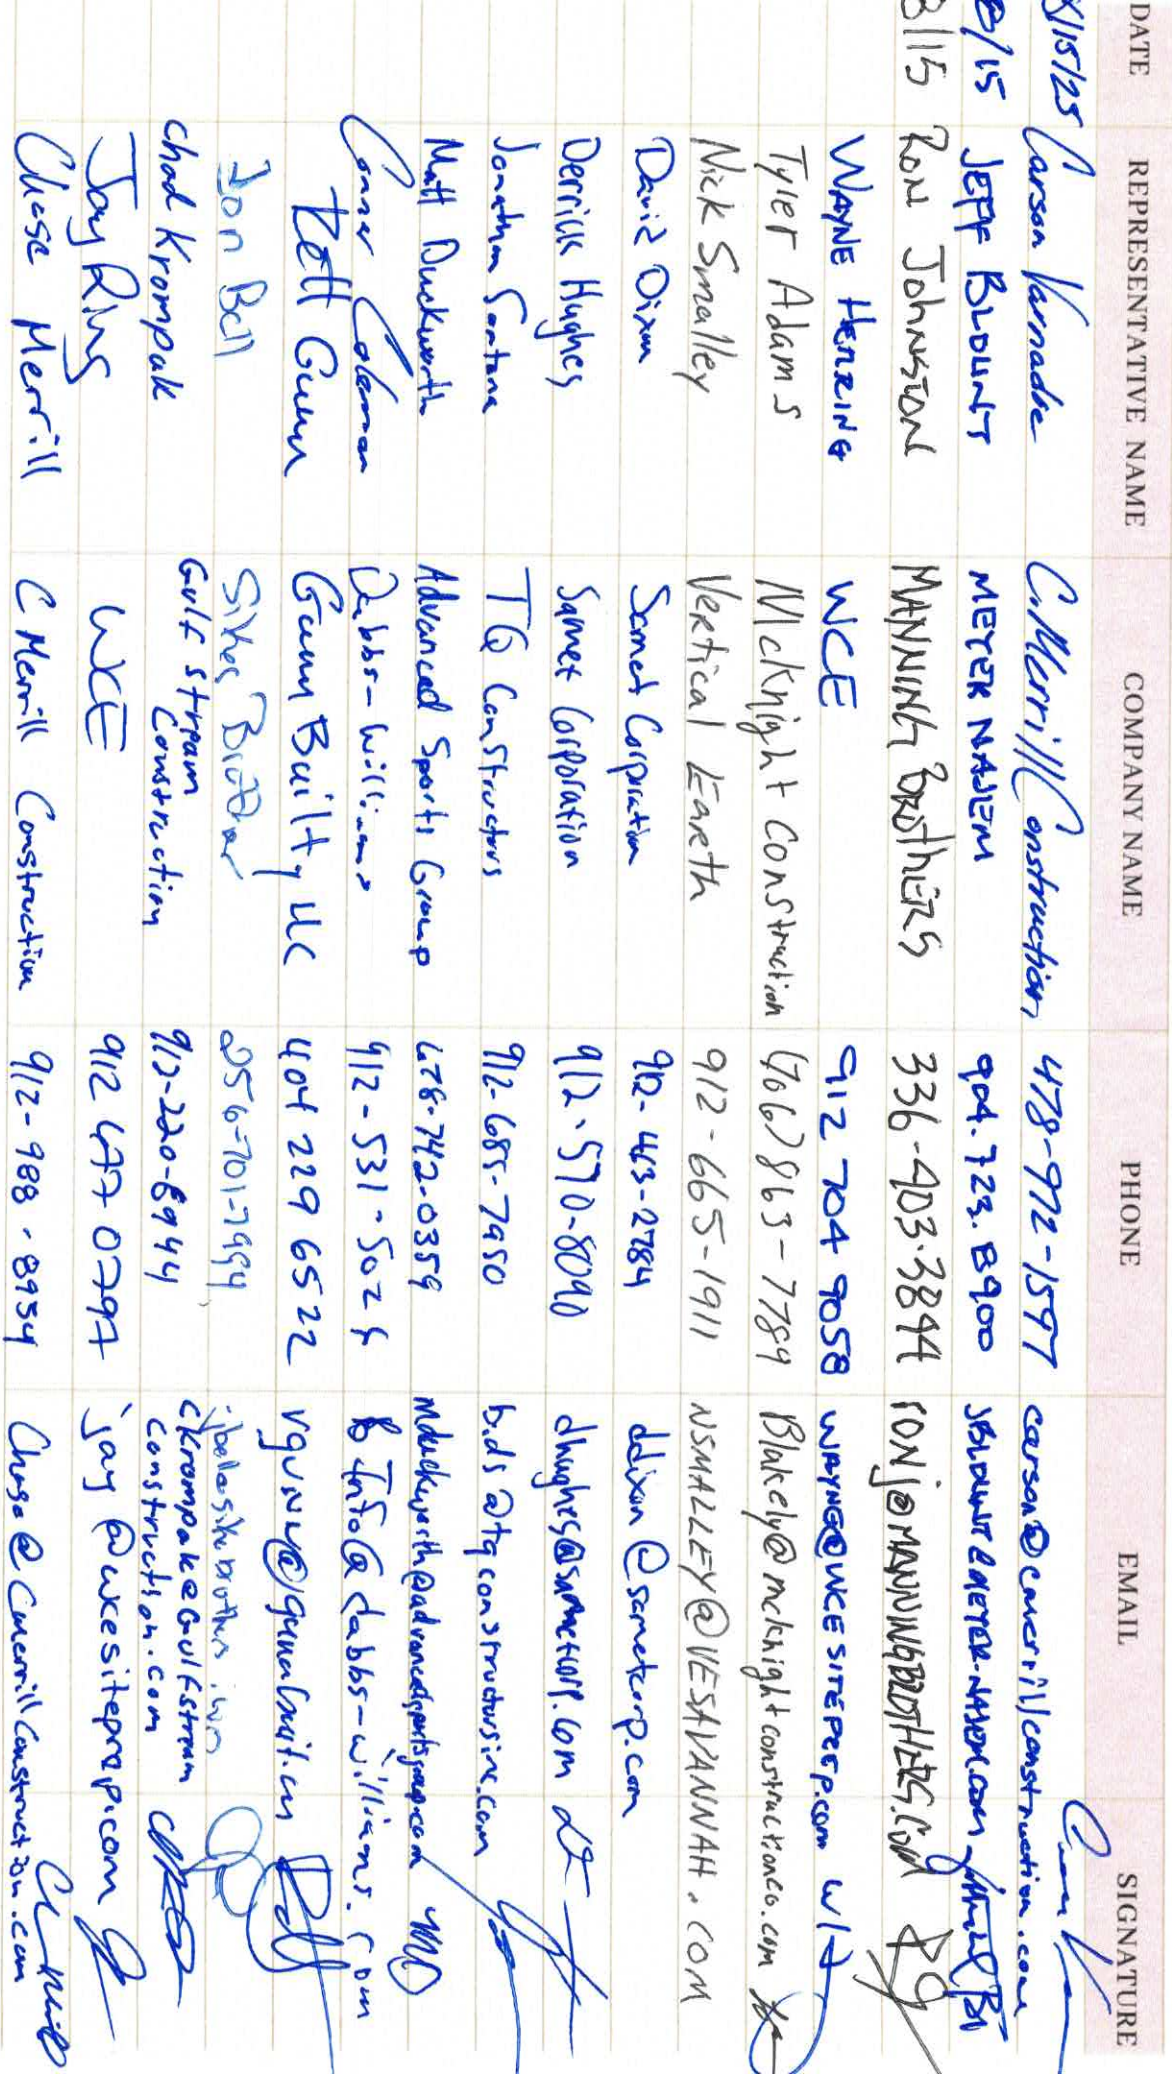 DATE REPRESENTATIVE NAME COMPANY NAME PHONE EMAIL SIGNATURE
8/15/25 Carson Varnadoe C. Merrill Construction 478-972-1597 carson@cmerrillconstruction.com
8/15 JEFF BLOUNT MEYER NAJEM 904.723.8900 JBLOUNT@MEYER-NAJEM.COM
8/15 RON JOHNSTON MANNING BROTHERS 336-403-3844 RONJ@MANNINGBROTHERS.COM
WAYNE HERRING WCE 912 704 9058 WAYNE@WCESITEPREP.com
Tyler Adams McKnight Construction (706) 863-7784 Blakely@mcknightconstructionco.com
Nick Smalley Vertical Earth 912-665-1911 NSMALLEY@VESAVANNAH.COM
David Dixon Samet Corporation 912-443-2784 ddixon@sametcorp.com
Derrick Hughes Samet Corporation 912-570-8090 dhughes@sametcorp.com
Jonathan Santana TQ Constructors 912-685-7950 bids@tqconstructorsinc.com
Matt Duckworth Advanced Sports Group 678-742-0359 mduckworth@advancedsportsgroup.com MD
Conner Coleman Dabbs-Williams 912-531-5024 Info@dabbs-williams.com
Rett Gunn Gunn Built, LLC 404 229 6522 rgunn@gunnbuilt.com
Jon Bell Sikes Brother 256-701-7994
Chad Krompak Gulf Stream Construction 912-220-8944 ckrompak@Gulfstreamconstruction.com
Jay WCE 912 477 0797 jay@wcesiteprep.com
Chase Merrill C Merrill Construction 912-988-8954 Chase@Cmerrillconstruction.com